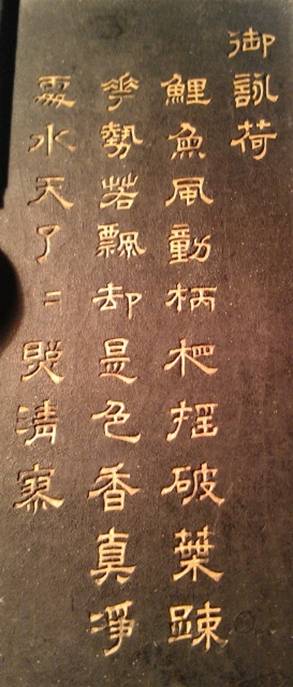 御詠荷
鯉魚風動柄杷搖破葉踈
華勢若飄却是色香真淨
處水天了〻照清寥